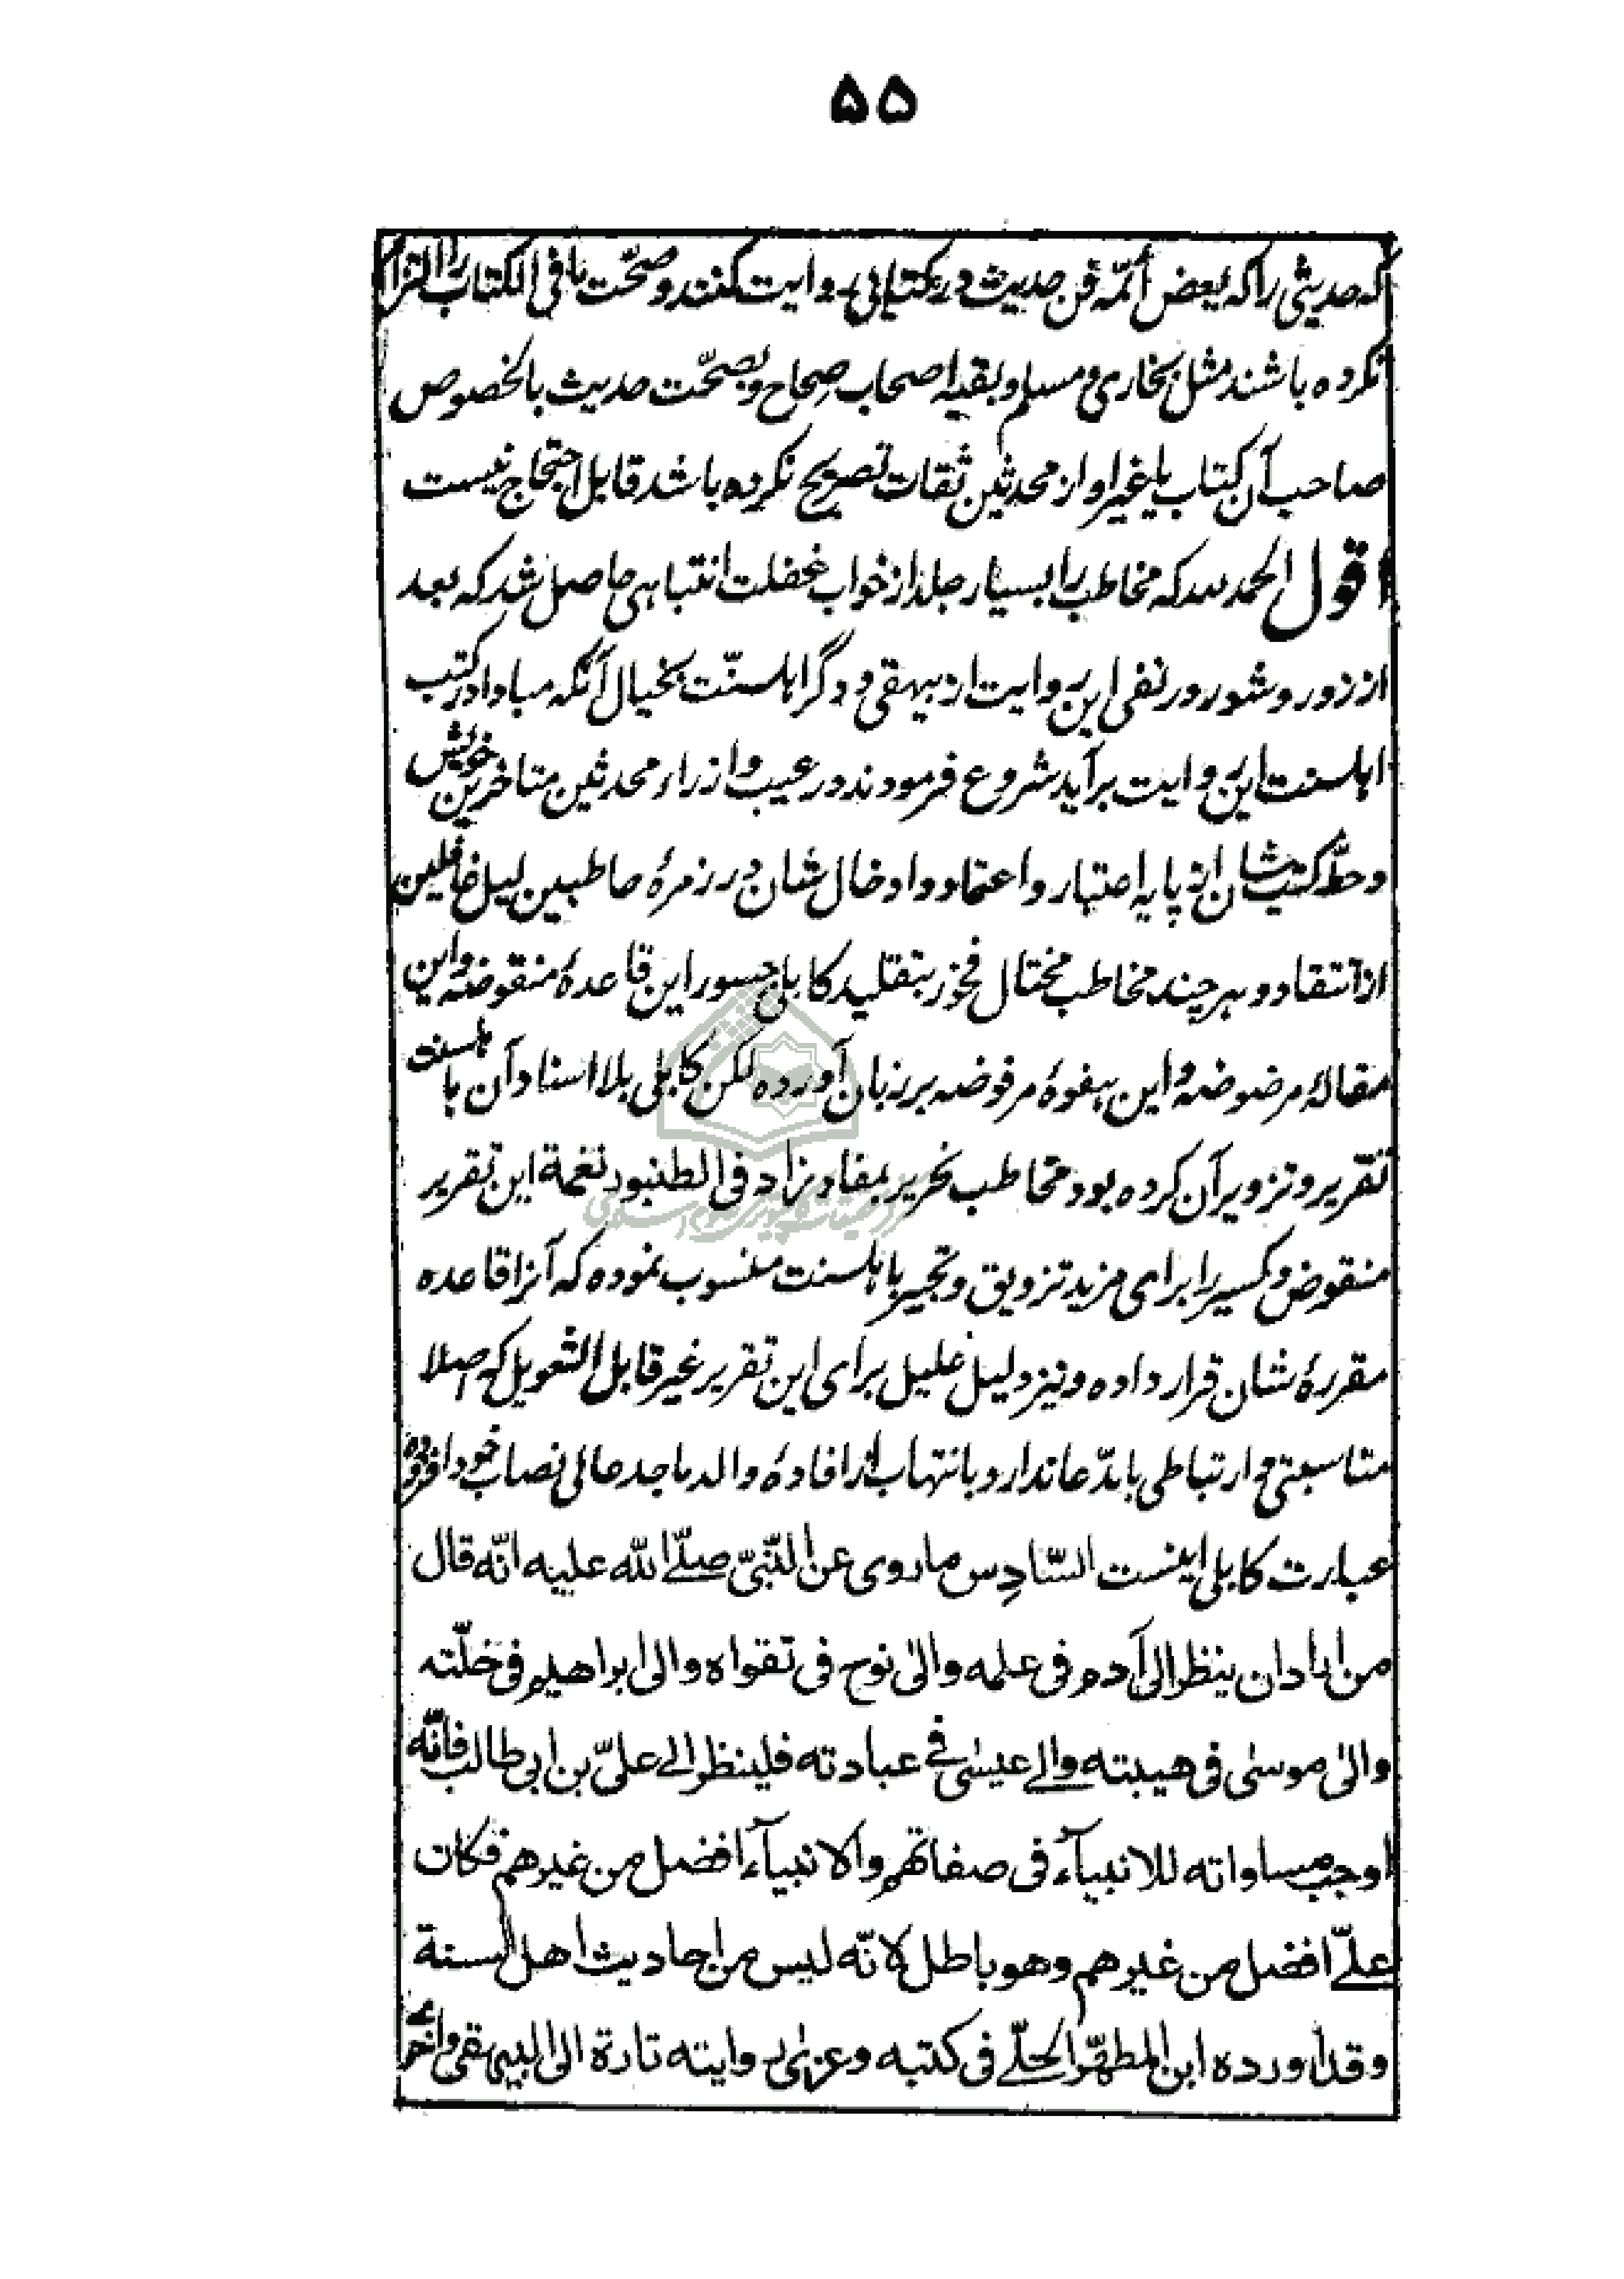 ۵۵
که حدیثی را که بعض أئمّه فن حدیث در کتابی روایت کنند و صحّت ما فی الکتاب را التزام
نکرده باشند مثل بخاری و مسلم و بقیه اصحاب صِحاح و بصحّت حدیث بالخصوص
صاحب آن کتاب یا غیر او از محدثین ثقات تصریح نکرده باشد قابل احتجاج نیست
اقول الحمد لله که مخاطب را بسیار جلد از خواب غفلت انتباهی حاصل شد که بعد
از زور و شور در نفی این روایت از بیهقی و دگر اهلسنّت بخیال آنکه مبادا در کتب
اهلسنت این روایت برآید شروع فرمودند در عیب و ازراء محدثین متاخرین خویش
و حطّ کتب شان از پایه اعتبار و اعتماد و ادخال شان در زمرهٔ حاطبین لیل غافلین
از انتقاد و هر چند مخاطب مختال فخور بتقلید کابلی جسور این قاعدهٔ منقوضه و این
مقالهٔ مرضوضه و این هفوهٔ مرفوضه بر زبان آورده لکن کابلی بلا اسناد آن باهلسنت
تقریر و تزویر آن کرده بود مخاطب نحریر بمفاد زاد فی الطنبور نغمة این تقریر
منقوض و کسیر را برای مزید تزویق و تحییر باهلسنت منسوب نموده که آنرا قاعده
مقررهٔ شان قرار داده و نیز دلیل غلیل برای این تقریر غیر قابل التعویل که اصلا
مناسبتی و ارتباطی بامدّعا ندارد بانتهاب از افادهٔ والد ماجد عالی نصاب خود افزوده
عبارت کابلی اینست السّادِس ما روی عن النّبیّ صلّے الله علیه انّه قال
من اراد ان ینظر الی آدم فی علمه والیٰ نوح فی تقواه والی ابراهیم فی خلّته
والیٰ موسٰی فی هیبته والے عیسٰی فے عبادته فلینظر الے علیّ بن ابی طالب فانّه
اوجب مساواته للانبیآء فی صفاتهم والانبیآء افضل من غیرهم فکان
علیّ افضل من غیرهم وهو باطل لانّه لیس من احادیث اهل السنة
وقد اورده ابن المطهّر الحلّے فی کتبه وعزیٰ روایته تارة الی البیهقی واخری